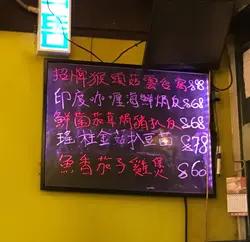 招牌猴頭菇雲吞窩 $98
印度咖喱海鮮焗反 $68
鮮菌茄草焗豬扒反 $68
瑤柱金菇扒豆苗 $78
魚香茄子雞煲 $60